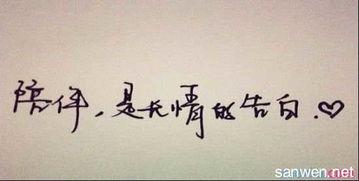 陪伴，是长情的告白.♡
sanwen.net